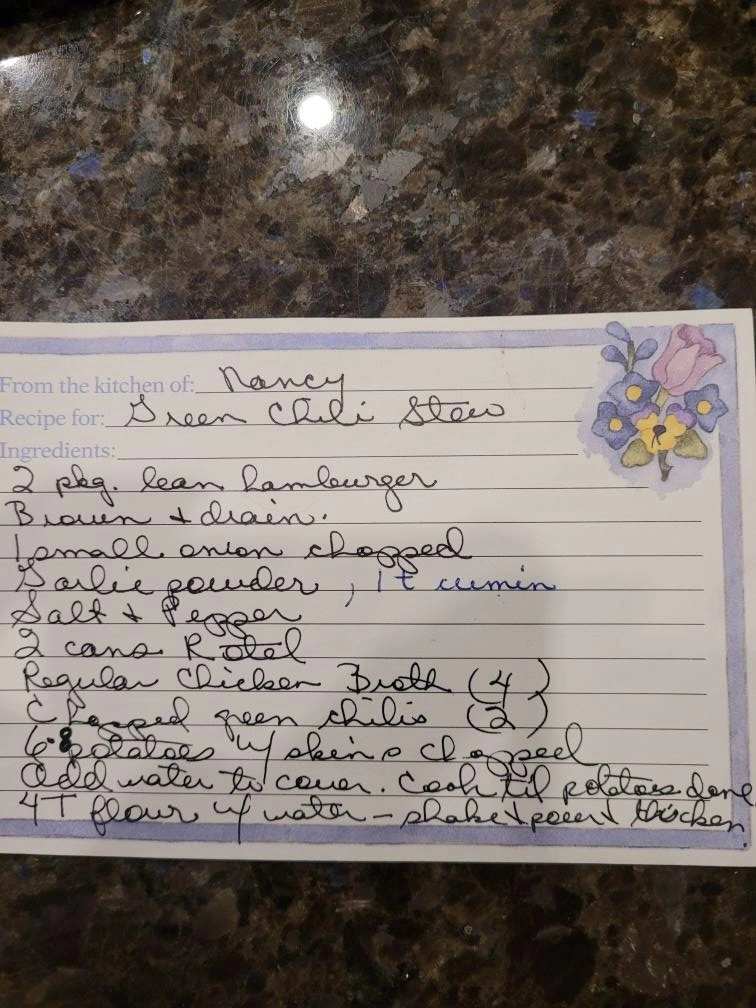 From the kitchen of: Nancy
Recipe for: Green Chili Stew
Ingredients:
2 pkg. lean hamburger
Brown + drain.
1 small onion chopped
Garlic powder, 1 t cumin
Salt + Pepper
2 cans Rotel
Regular Chicken Broth (4)
Chopped green chilis (2)
6-8 potatoes w/ skins chopped
Add water to cover. Cook til potatoes done
4T flour w/ water - shake + pour + thicken.